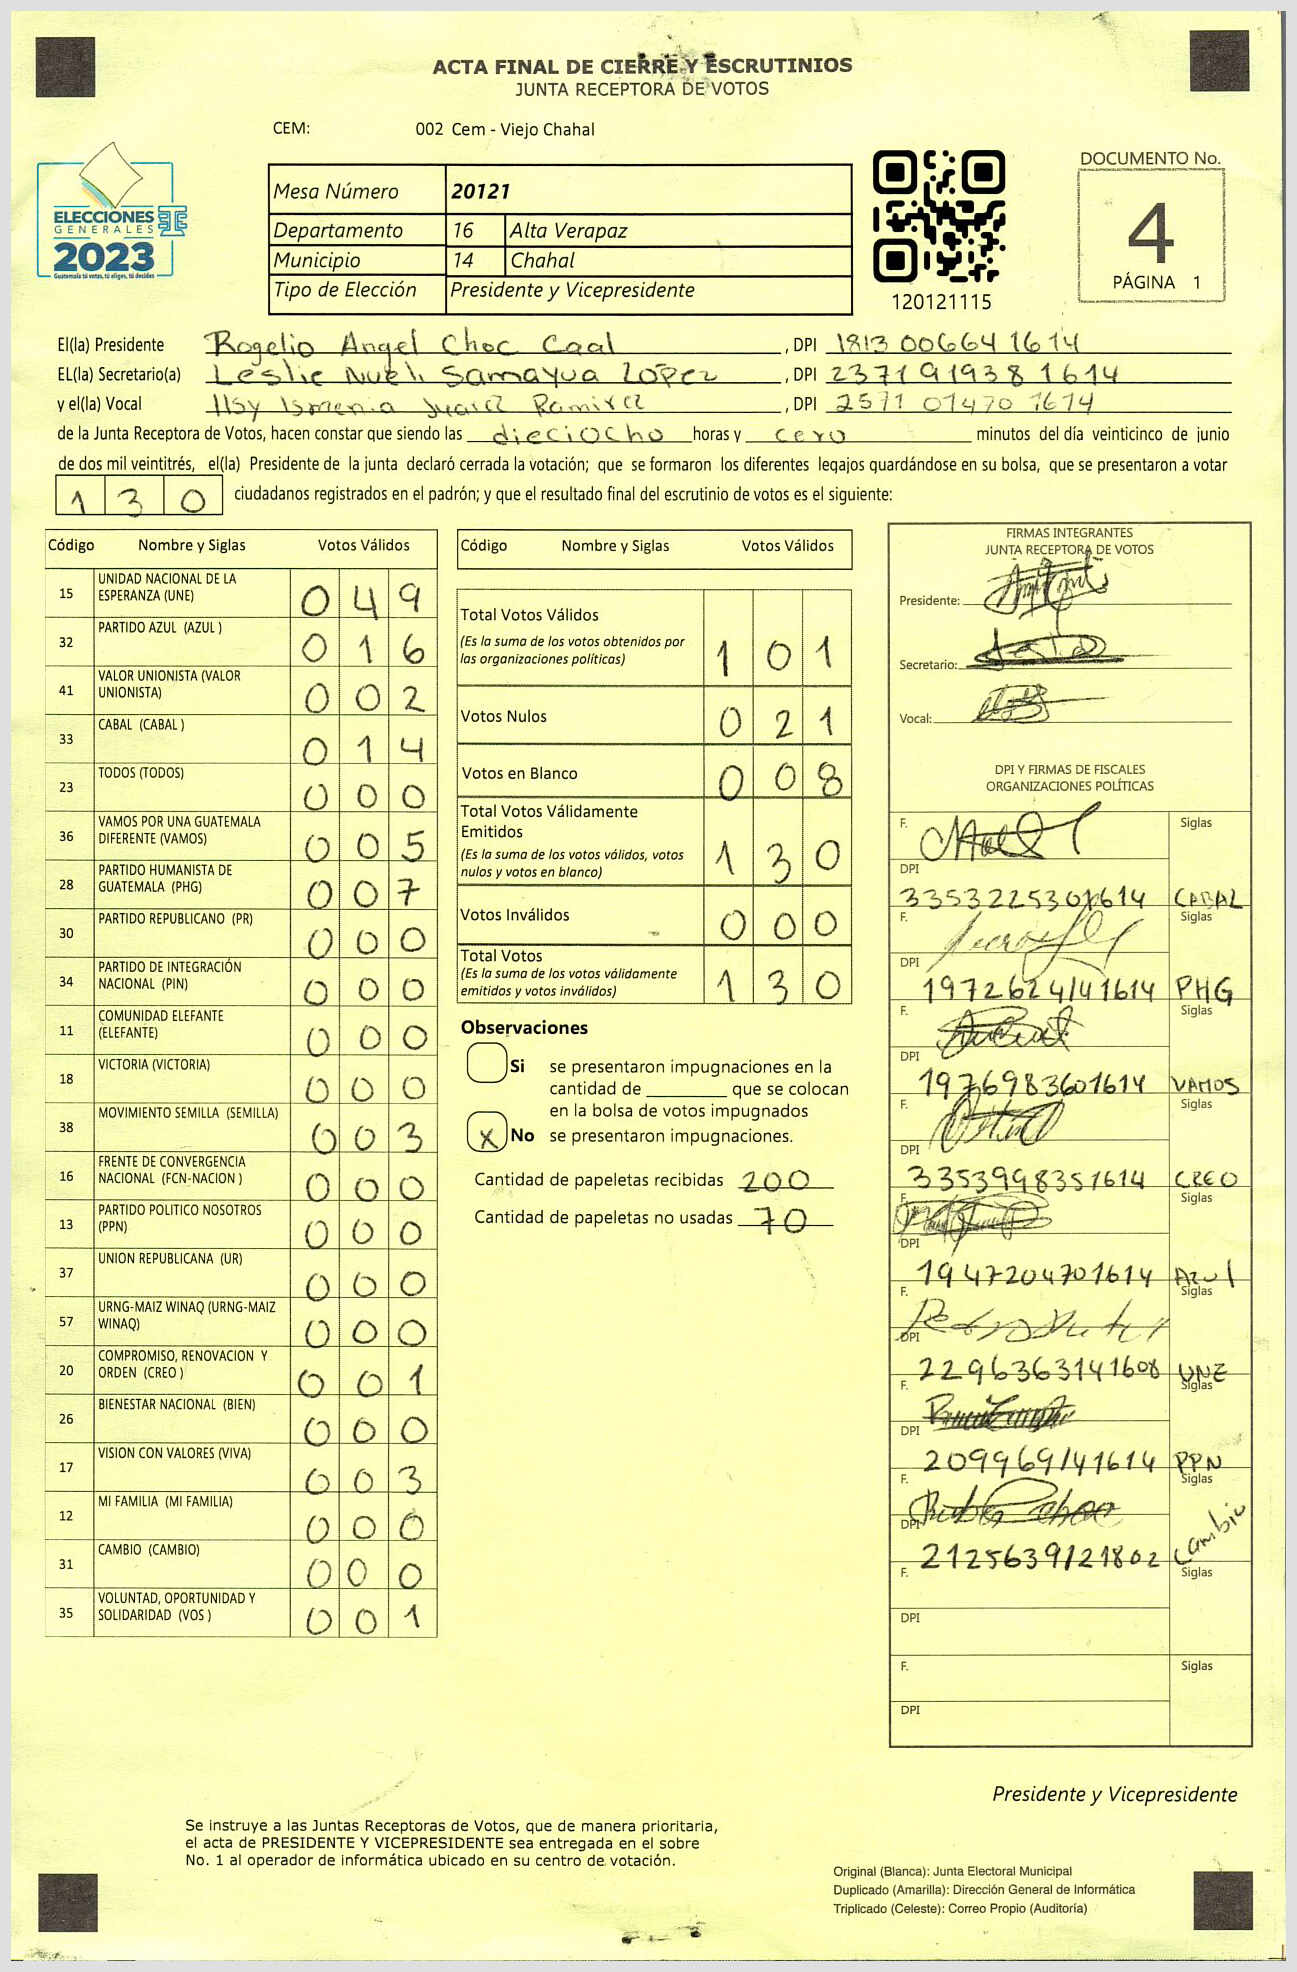 ACTA FINAL DE CIERRE Y ESCRUTINIOS
JUNTA RECEPTORA DE VOTOS
CEM: 002 Cem - Viejo Chahal
ELECCIONES
GENERALES
2023
Guatemala tú votas, tú eliges, tú decides
Mesa Número 20121
Departamento 16 Alta Verapaz
Municipio 14 Chahal
Tipo de Elección Presidente y Vicepresidente
120121115
DOCUMENTO No.
4
PÁGINA 1
El(la) Presidente Rogelio Angel Choc Caal, DPI 1813 00664 1614
EL(la) Secretario(a) Leslie Nueli Samayua López, DPI 2371 91938 1614
y el(la) Vocal Ilsy Ismenia Juarez Ramirez, DPI 2571 01470 1614
de la Junta Receptora de Votos, hacen constar que siendo las dieciocho horas y cero minutos del día veinticinco de junio
de dos mil veintitrés, el(la) Presidente de la junta declaró cerrada la votación; que se formaron los diferentes legajos guardándose en su bolsa, que se presentaron a votar
1 3 0 ciudadanos registrados en el padrón; y que el resultado final del escrutinio de votos es el siguiente:
Código Nombre y Siglas Votos Válidos
15 UNIDAD NACIONAL DE LA ESPERANZA (UNE) 0 4 9
32 PARTIDO AZUL (AZUL ) 0 1 6
41 VALOR UNIONISTA (VALOR UNIONISTA) 0 0 2
33 CABAL (CABAL ) 0 1 4
23 TODOS (TODOS) 0 0 0
36 VAMOS POR UNA GUATEMALA DIFERENTE (VAMOS) 0 0 5
28 PARTIDO HUMANISTA DE GUATEMALA (PHG) 0 0 7
30 PARTIDO REPUBLICANO (PR) 0 0 0
34 PARTIDO DE INTEGRACIÓN NACIONAL (PIN) 0 0 0
11 COMUNIDAD ELEFANTE (ELEFANTE) 0 0 0
18 VICTORIA (VICTORIA) 0 0 0
38 MOVIMIENTO SEMILLA (SEMILLA) 0 0 3
16 FRENTE DE CONVERGENCIA NACIONAL (FCN-NACION ) 0 0 0
13 PARTIDO POLITICO NOSOTROS (PPN) 0 0 0
37 UNION REPUBLICANA (UR) 0 0 0
57 URNG-MAIZ WINAQ (URNG-MAIZ WINAQ) 0 0 0
20 COMPROMISO, RENOVACION Y ORDEN (CREO ) 0 0 1
26 BIENESTAR NACIONAL (BIEN) 0 0 0
17 VISION CON VALORES (VIVA) 0 0 3
12 MI FAMILIA (MI FAMILIA) 0 0 0
31 CAMBIO (CAMBIO) 0 0 0
35 VOLUNTAD, OPORTUNIDAD Y SOLIDARIDAD (VOS ) 0 0 1
Código Nombre y Siglas Votos Válidos
Total Votos Válidos 1 0 1
(Es la suma de los votos obtenidos por
las organizaciones políticas)
Votos Nulos 0 2 1
Votos en Blanco 0 0 8
Total Votos Válidamente
Emitidos 1 3 0
(Es la suma de los votos válidos, votos
nulos y votos en blanco)
Votos Inválidos 0 0 0
Total Votos 1 3 0
(Es la suma de los votos válidamente
emitidos y votos inválidos)
Observaciones
Si se presentaron impugnaciones en la
cantidad de ________ que se colocan
en la bolsa de votos impugnados
x No se presentaron impugnaciones.
Cantidad de papeletas recibidas 200
Cantidad de papeletas no usadas 70
FIRMAS INTEGRANTES
JUNTA RECEPTORA DE VOTOS
Presidente:
Secretario:
Vocal:
DPI Y FIRMAS DE FISCALES
ORGANIZACIONES POLÍTICAS
F. Siglas
DPI
3353225301614 CABAL
F. Siglas
DPI
1972624141614 PHG
F. Siglas
DPI
1976983601614 VAMOS
F. Siglas
DPI
3353998351614 CREO
F. Siglas
DPI
1947204701614 Azul
F. Siglas
DPI
2296363141608 UNE
F. Siglas
DPI
209969141614 PPN
F. Siglas
DPI
2125639121802 Cambio
F. Siglas
DPI
F. Siglas
DPI
Presidente y Vicepresidente
Se instruye a las Juntas Receptoras de Votos, que de manera prioritaria,
el acta de PRESIDENTE Y VICEPRESIDENTE sea entregada en el sobre
No. 1 al operador de informática ubicado en su centro de votación.
Original (Blanca): Junta Electoral Municipal
Duplicado (Amarilla): Dirección General de Informática
Triplicado (Celeste): Correo Propio (Auditoría)